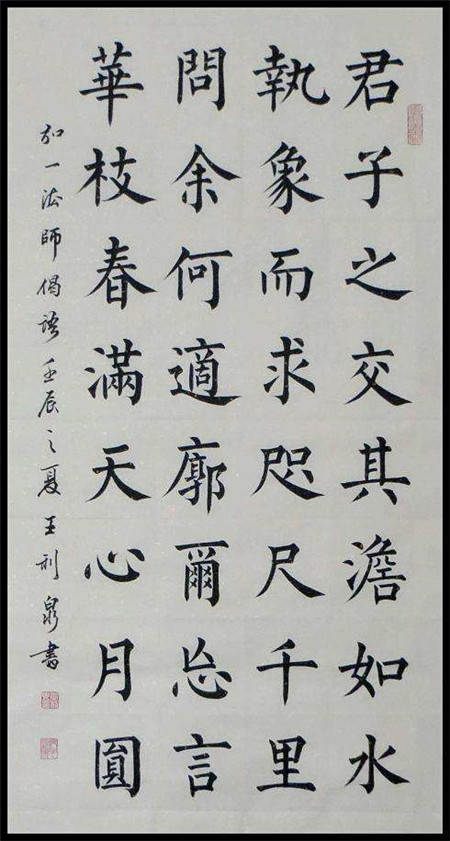 君子之交其澹如水
執象而求咫尺千里
問余何適廓爾忘言
華枝春滿天心月圓
弘一法師偈語壬辰之夏王利泉書